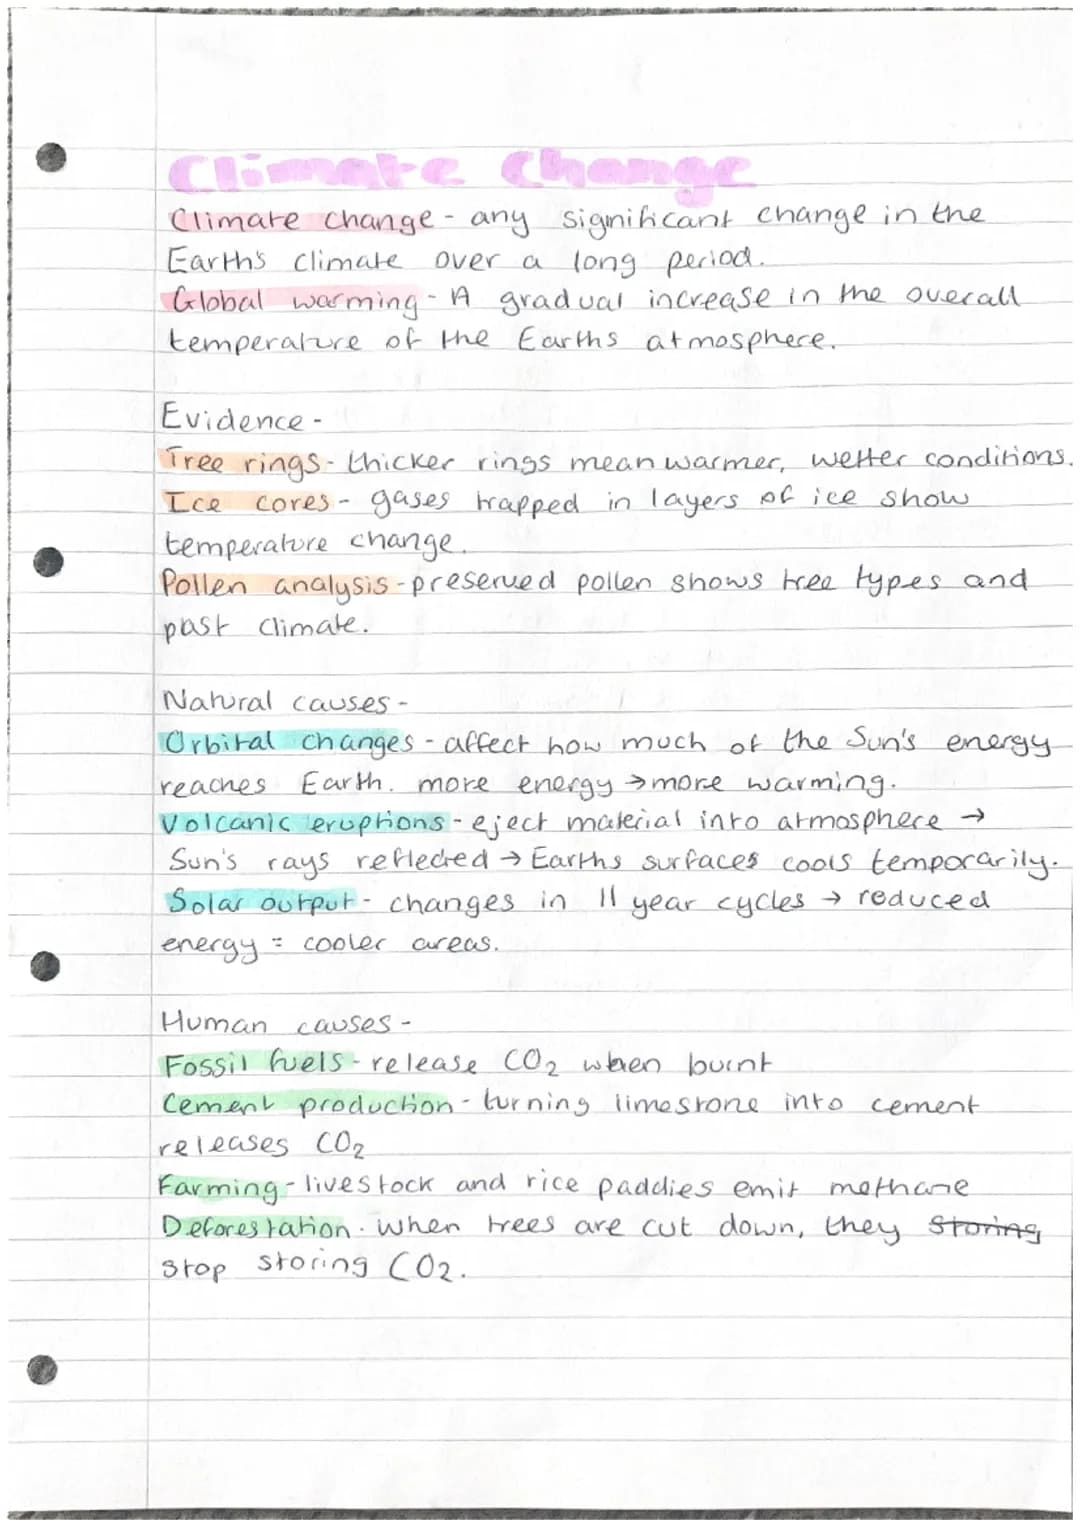 Climate Change
Climate change - any significant change in the
Earth's climate over a long period.
Global warming - A gradual increase in the overall
temperature of the Earths atmosphere.
Evidence -
Tree rings - thicker rings mean warmer, wetter conditions.
Ice cores - gases trapped in layers of ice show
temperature change.
Pollen analysis - preserved pollen shows tree types and
past climate.
Natural causes -
Orbital changes - affect how much of the Sun's energy
reaches Earth. more energy → more warming.
Volcanic eruptions - eject material into atmosphere →
Sun's rays reflected → Earths surfaces cools temporarily.
Solar output - changes in 11 year cycles → reduced
energy = cooler areas.
Human causes -
Fossil fuels - release CO₂ when burnt
Cement production - turning limestone into cement
releases CO₂
Farming - livestock and rice paddies emit methane
Deforestation - when trees are cut down, they storing
stop storing CO₂.